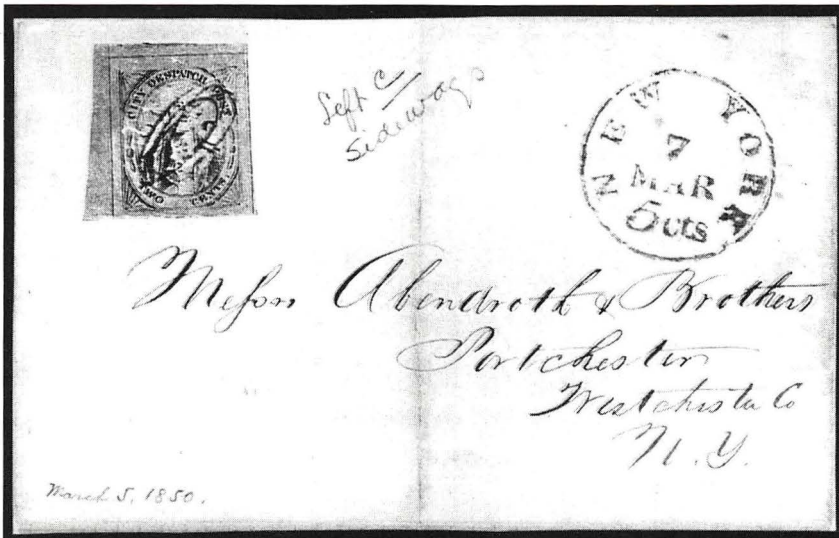 CITY DESPATCH POST
TWO CENTS
left c
sideways
NEW YORK
7
MAR
5cts
Messrs Abendroth & Brothers
Portchester
Westchester Co
N.Y.
March 5, 1850.